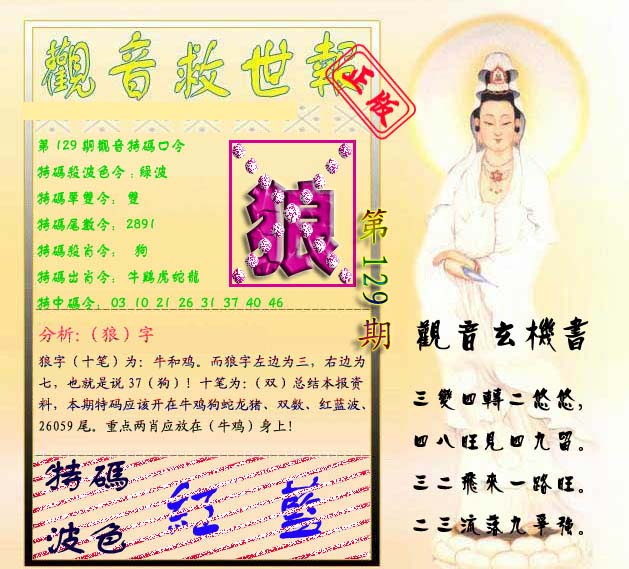 觀音救世報
正版
第129期觀音特碼口令
特碼殺波色令：綠波
特碼單雙令： 雙
特碼尾數令： 2891
特碼殺肖令： 狗
特碼出肖令： 牛鷄虎蛇龍
特中碼令： 03 10 21 26 31 37 40 46
狼
第129期
分析：（狼）字
狼字（十笔）为：牛和鸡。而狼字左边为三，右边为
七，也就是说37（狗）！十笔为：（双）总结本报资
料，本期特码应该开在牛鸡狗蛇龙猪、双数、红蓝波、
26059尾。重点两肖应放在（牛鸡）身上！
特碼
波色
紅 藍
觀音玄機書
三變四轉二悠悠，
四八旺見四九留。
三二飛來一路旺。
二三流落九爭強。